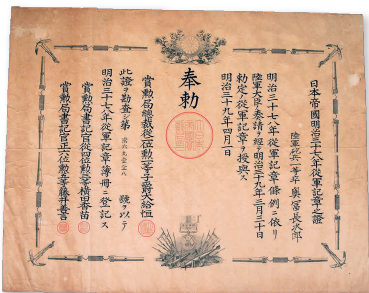 日本帝國明治三十七八年從軍記章之證
陸軍砲兵一等卒 奧冨長次郎
明治三十七八年從軍記章條例ニ依リ
陸軍大臣ノ奏請ヲ經テ明治三十九年三月三十日
勅定ノ從軍記章ヲ授與ス
明治三十九年四月一日
奉勅
賞勲局總裁從二位勲一等子爵大給恒
此證ヲ勘査シ第 號ヲ以テ
明治三十七八年從軍記章簿冊ニ登記ス
賞勲局書記官從四位勲三等横田香苗
賞勲局書記官正六位勲五等藤井善言